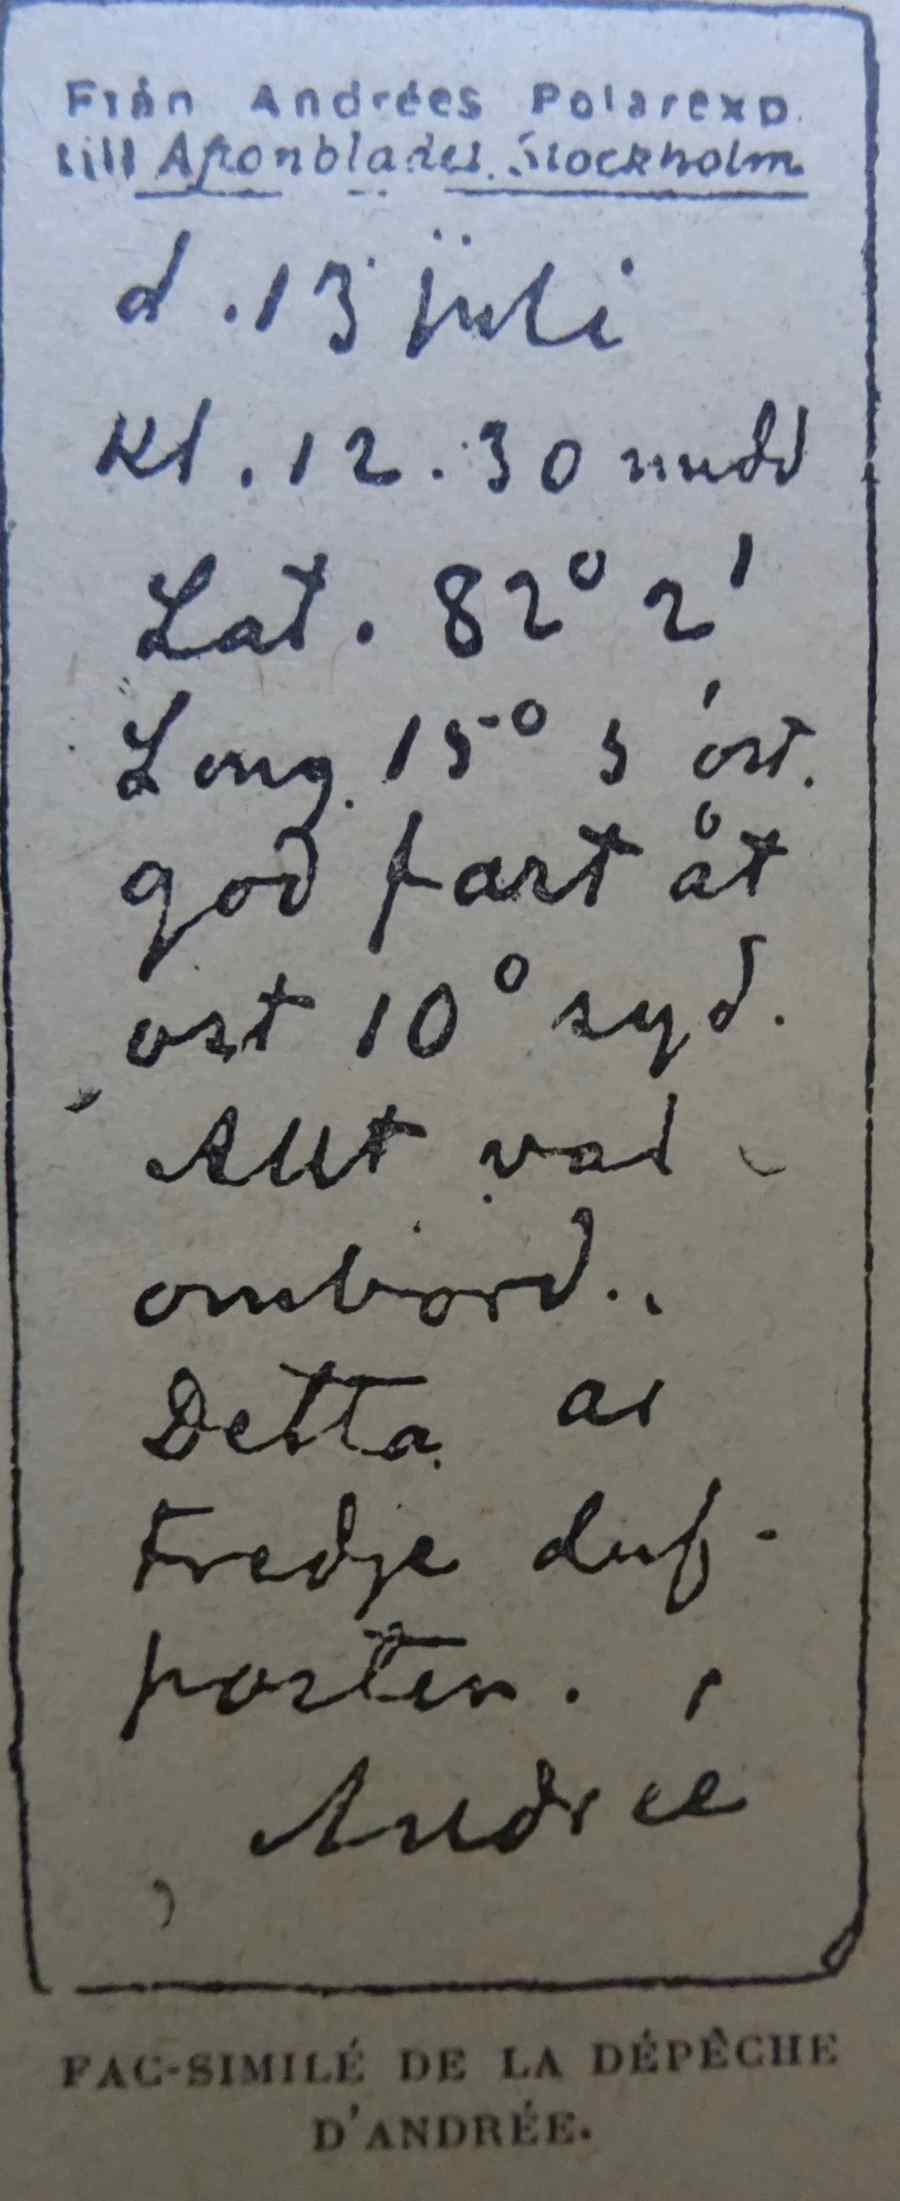 Från Andrées Polarexp.
till Aftonbladet, Stockholm
d. 13 juli
kl. 12.30 midd
Lat. 82° 2'
Long. 15° 5' ost.
god fart åt
ost 10° syd.
Allt val
ombord.
Detta ar
tredje duf-
posten.
Andrée
FAC-SIMILÉ DE LA DÉPÊCHE
D'ANDRÉE.